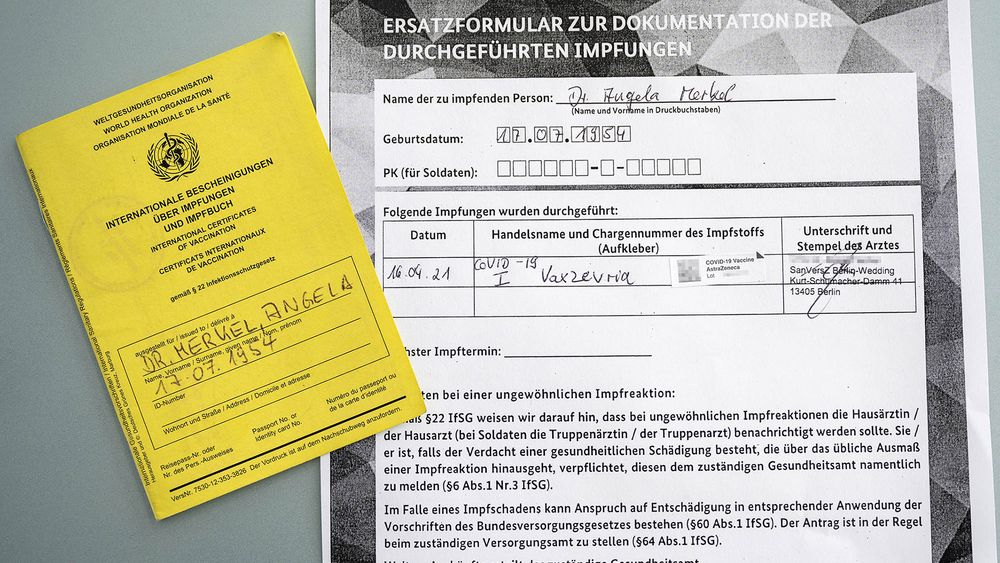 WELTGESUNDHEITSORGANISATION
WORLD HEALTH ORGANIZATION
ORGANISATION MONDIALE DE LA SANTÉ
INTERNATIONALE BESCHEINIGUNGEN
ÜBER IMPFUNGEN
UND IMPFBUCH
INTERNATIONAL CERTIFICATES
OF VACCINATION
CERTIFICATS INTERNATIONAUX
DE VACCINATION
gemäß § 22 Infektionsschutzgesetz
ausgestellt für / issued to / délivré à
DR. MERKEL, ANGELA
Name, Vorname / Surname, given name / Nom, prénom
17.07.1954
ID-Number
Wohnort und Straße / Address / Domicile et adresse
Reisepass-Nr. oder
Nr. des Pers.-Ausweises
Passport No. or
Identity card No.
Numéro du passeport ou
de la carte d'identité
VersNr. 7530-12-353-3826 Der Vordruck ist auf dem Nachschubweg anzufordern.
ERSATZFORMULAR ZUR DOKUMENTATION DER
DURCHGEFÜHRTEN IMPFUNGEN
Name der zu impfenden Person: Dr. Angela Merkel
(Name und Vorname in Druckbuchstaben)
Geburtsdatum: 17.07.1954
PK (für Soldaten):
Folgende Impfungen wurden durchgeführt:
Datum
Handelsname und Chargennummer des Impfstoffs
(Aufkleber)
Unterschrift und
Stempel des Arztes
16.04.21
COVID-19
I Vaxzevria
COVID-19 Vaccine
AstraZeneca
Lot
SanVersZ Berlin-Wedding
Kurt-Schumacher-Damm 41
13405 Berlin
hster Impftermin:
ten bei einer ungewöhnlichen Impfreaktion:
ß §22 IfSG weisen wir darauf hin, dass bei ungewöhnlichen Impfreaktionen die Hausärztin /
der Hausarzt (bei Soldaten die Truppenärztin / der Truppenarzt) benachrichtigt werden sollte. Sie /
er ist, falls der Verdacht einer gesundheitlichen Schädigung besteht, die über das übliche Ausmaß
einer Impfreaktion hinausgeht, verpflichtet, diesen dem zuständigen Gesundheitsamt namentlich
zu melden (§6 Abs.1 Nr.3 IfSG).
Im Falle eines Impfschadens kann Anspruch auf Entschädigung in entsprechender Anwendung der
Vorschriften des Bundesversorgungsgesetzes bestehen (§60 Abs.1 IfSG). Der Antrag ist in der Regel
beim zuständigen Versorgungsamt zu stellen (§64 Abs.1 IfSG).